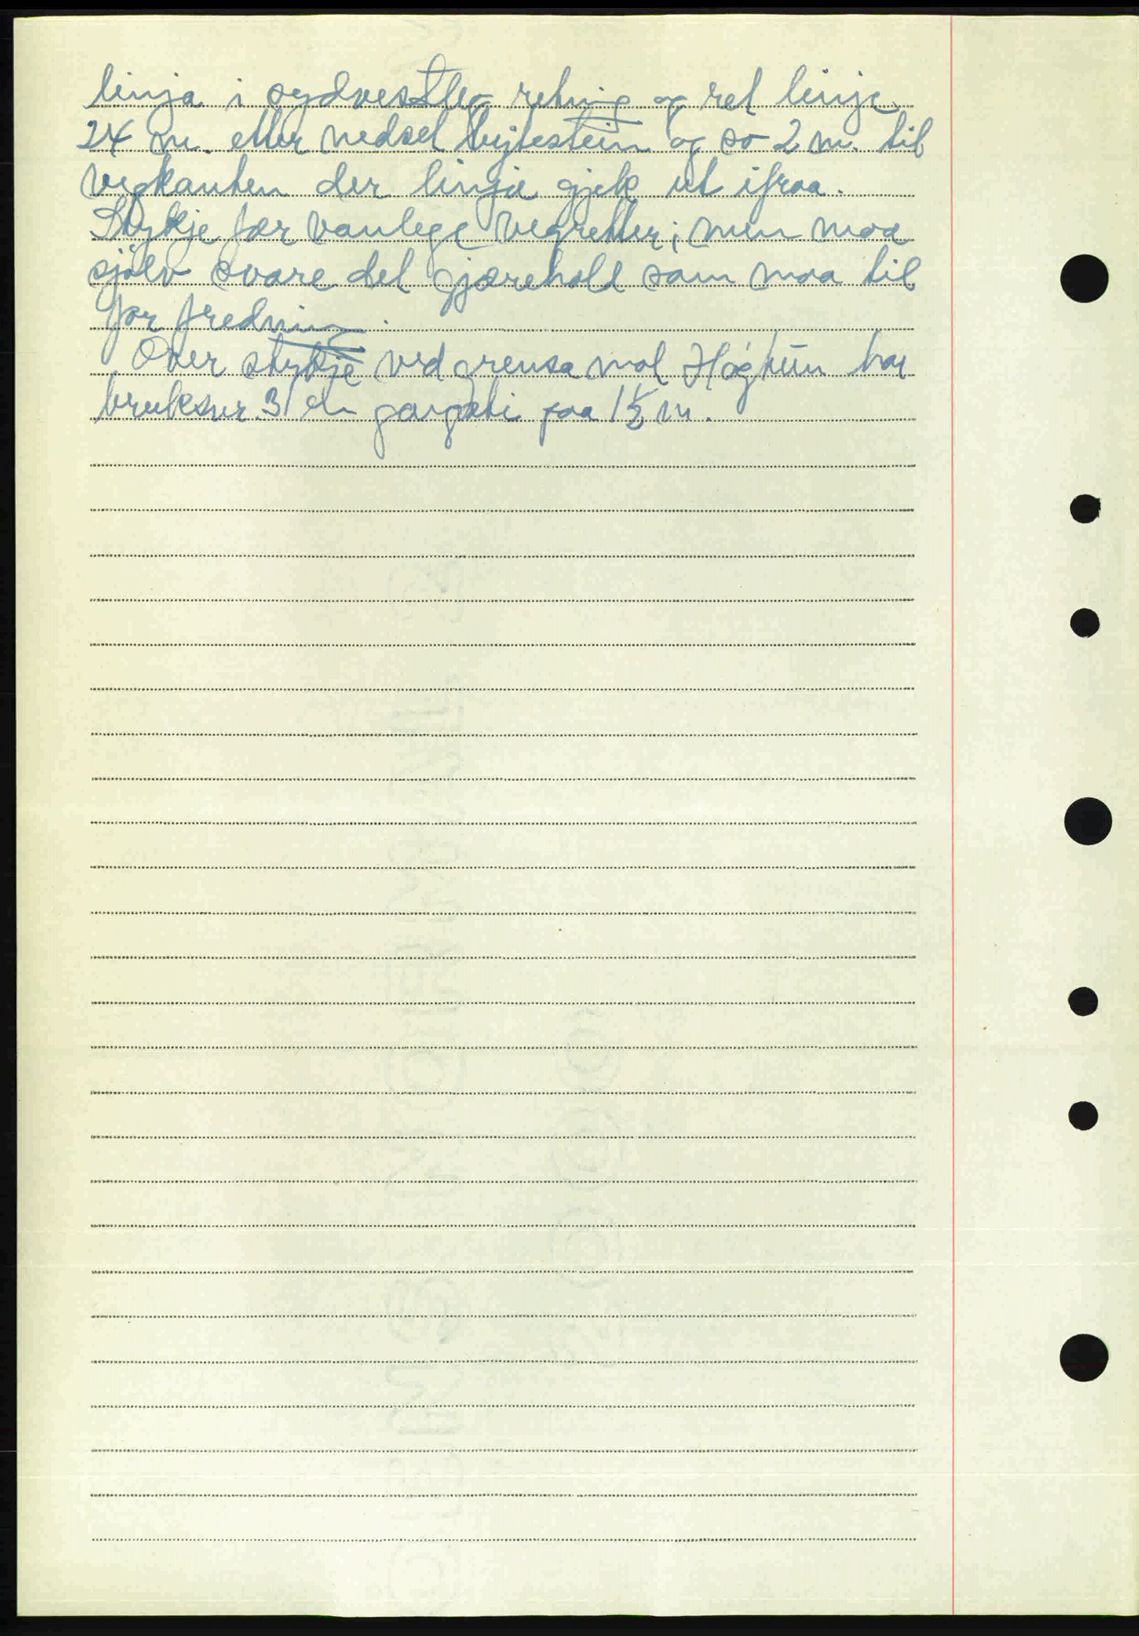 linja i sydvestleg retning og ret linje
24 m. etter nedset bytestein og so 2 m. til
vegkanten der linja gjek ut ifraa.
Stykje fær vanlege vegretter; men maa
sjølv svare det gjærehold som maa til
for fredning.
Over stykje ved grensa mot Høgtun har
bruksnr. 31 ein gangsti paa 1½ m.